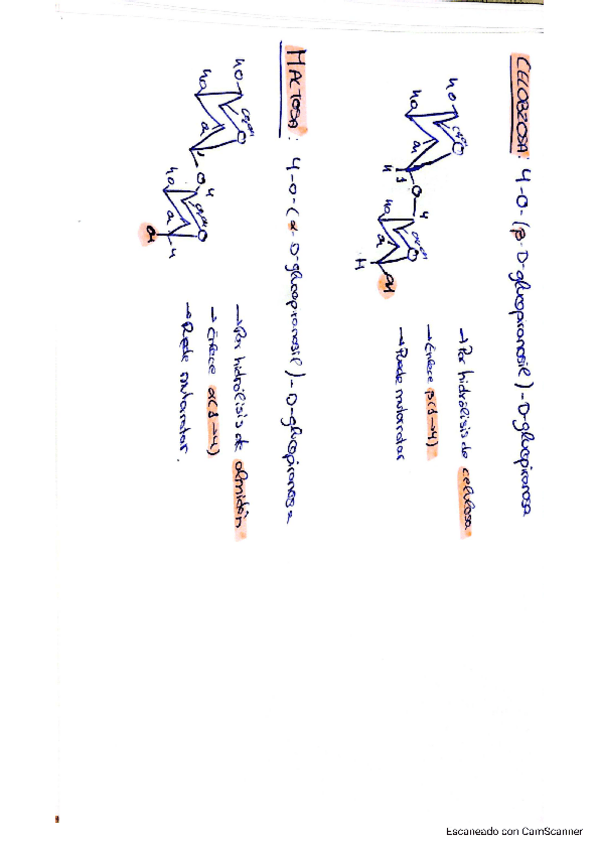 CELOBIOSA: 4-O-(β-D-glucopiranosil)-D-glucopiranosa
→ Por hidrólisis de celulosa
→ Enlace β(1→4)
→ Puede mutarrotar
HO
HO
OH
O
H
1
O
4
HO
O
OH
H
MALTOSA: 4-O-(α-D-glucopiranosil)-D-glucopiranosa
→ Por hidrólisis de almidón
→ Enlace α(1→4)
→ Puede mutarrotar.
HO
HO
O
O
4
HO
O
H
OH
Escaneado con CamScanner